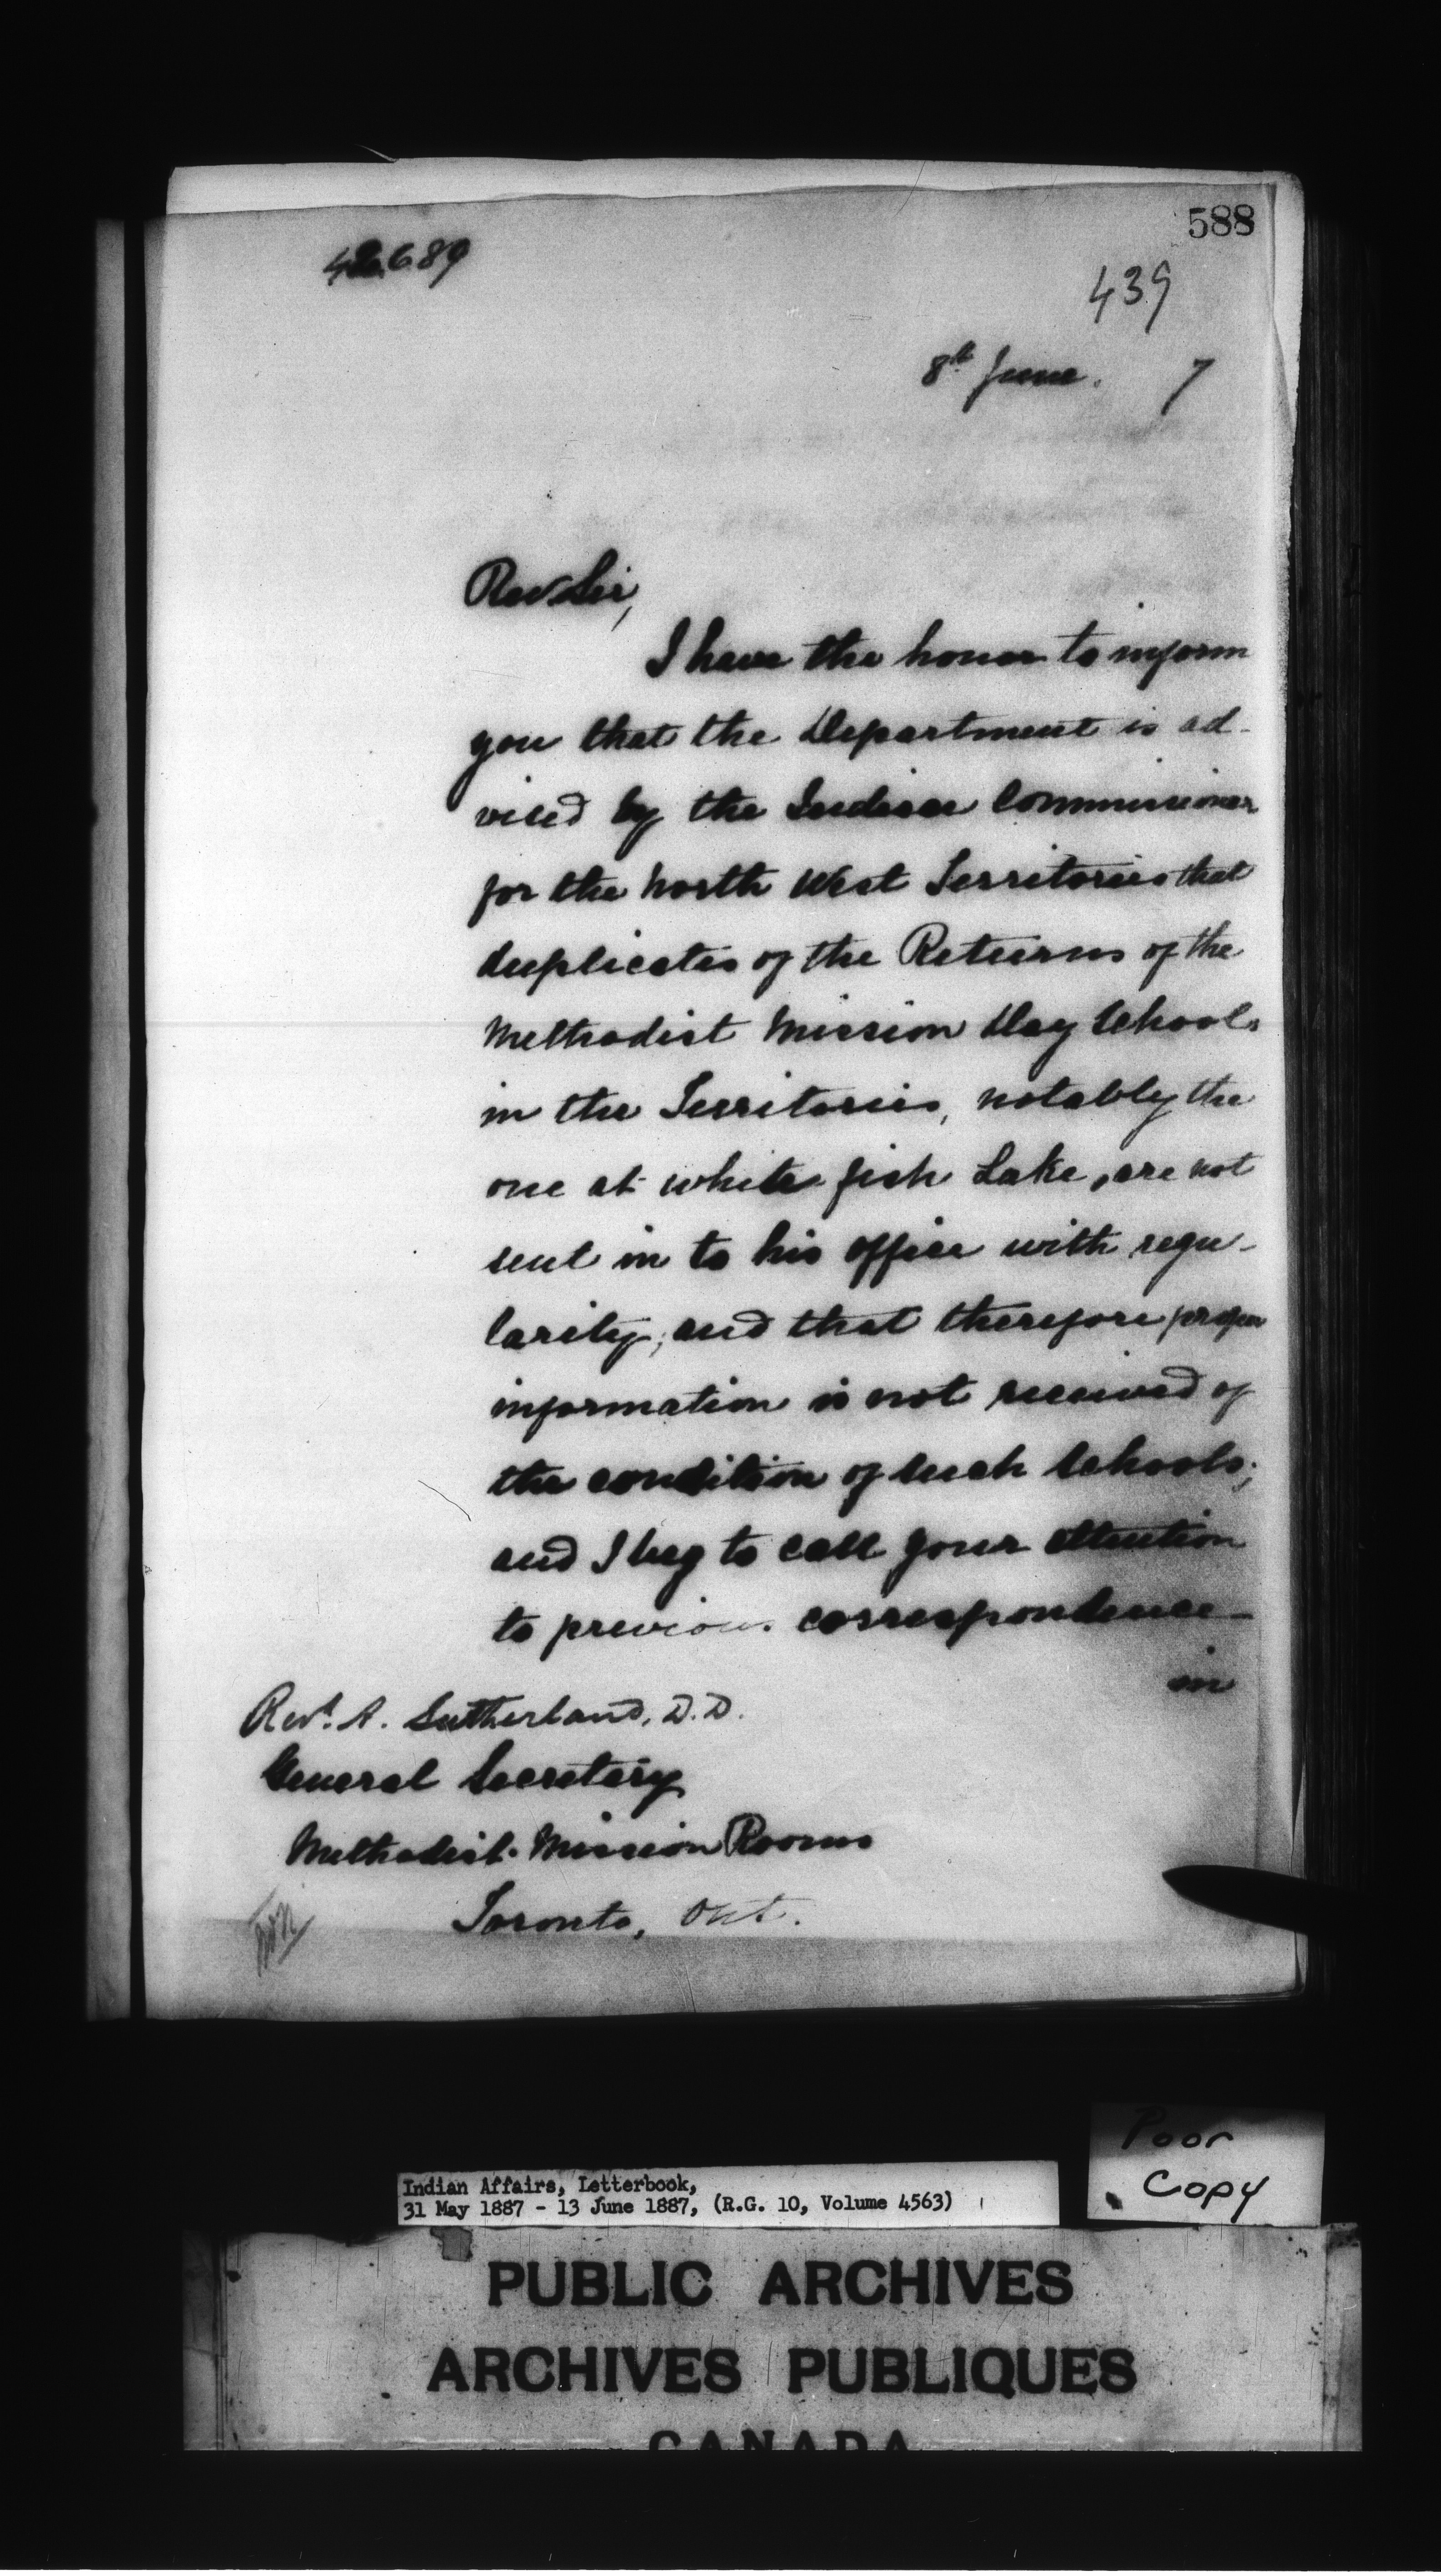 588
439
8th June. 7
Rev Sir,
I have the honor to inform
you that the Department is ad-
vised by the Indian Commissioner
for the North West Territories that
duplicates of the Returns of the
Methodist Mission Day Schools
in the Territories, notably the
one at White fish Lake, are not
sent in to his office with regu-
larity; and that therefore proper
information is not received of
the condition of such Schools;
and I beg to call your attention
to previous correspondence
in
Revd. A. Sutherland, D.D.
General Secretary
Methodist Mission Rooms
Toronto, Ont.
Poor
Copy
Indian Affairs, Letterbook,
31 May 1887 - 13 June 1887, (R.G. 10, Volume 4563)
PUBLIC ARCHIVES
ARCHIVES PUBLIQUES
CANADA